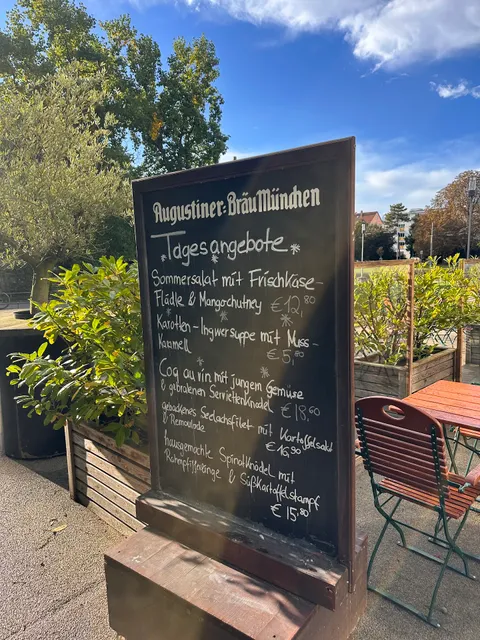 Augustiner-Bräu München
Tagesangebote
Sommersalat mit Frischkäse-
Flädle & Mangochutney €12,80
Karotten-Ingwersuppe mit Nuss-
Karamell €5,80
Coq au vin mit jungem Gemüse
& gebratenen Serviettenknödel €18,60
gebackenes Seelachsfilet mit Kartoffelsalat
& Remoulade €16,90
hausgemachte Spinatknödel mit
& Süßkartoffelstampf
€15,80